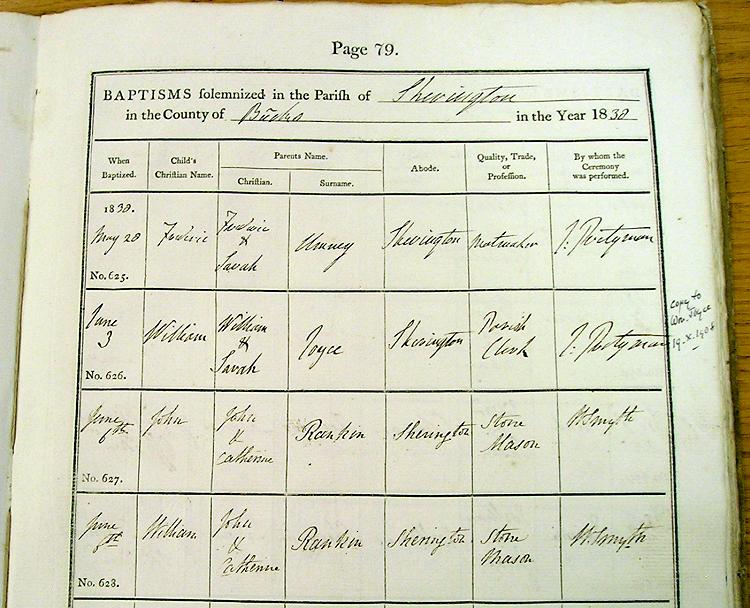 Page 79.
BAPTISMS solemnized in the Parish of Sherington
in the County of Bucks in the Year 1838
When Baptized.
Child's Christian Name.
Parents Name.
Christian.
Surname.
Abode.
Quality, Trade, or Profession.
By whom the Ceremony was performed.
1838.
May 28
No. 625.
Frederic
Frederic & Sarah
Umney
Sherington
Matmaker
J. Pretyman
June 3
No. 626.
William
William & Sarah
Joyce
Sherington
Parish Clerk
J. Pretyman
copy to
Wm. Joyce
19-X-1908
June 6th
No. 627.
John
John & Catherine
Rankin
Sherington
Stone Mason
W. Smyth
June
No. 628.
William
John & Catherine
Rankin
Sherington
Stone Mason
W. Smyth